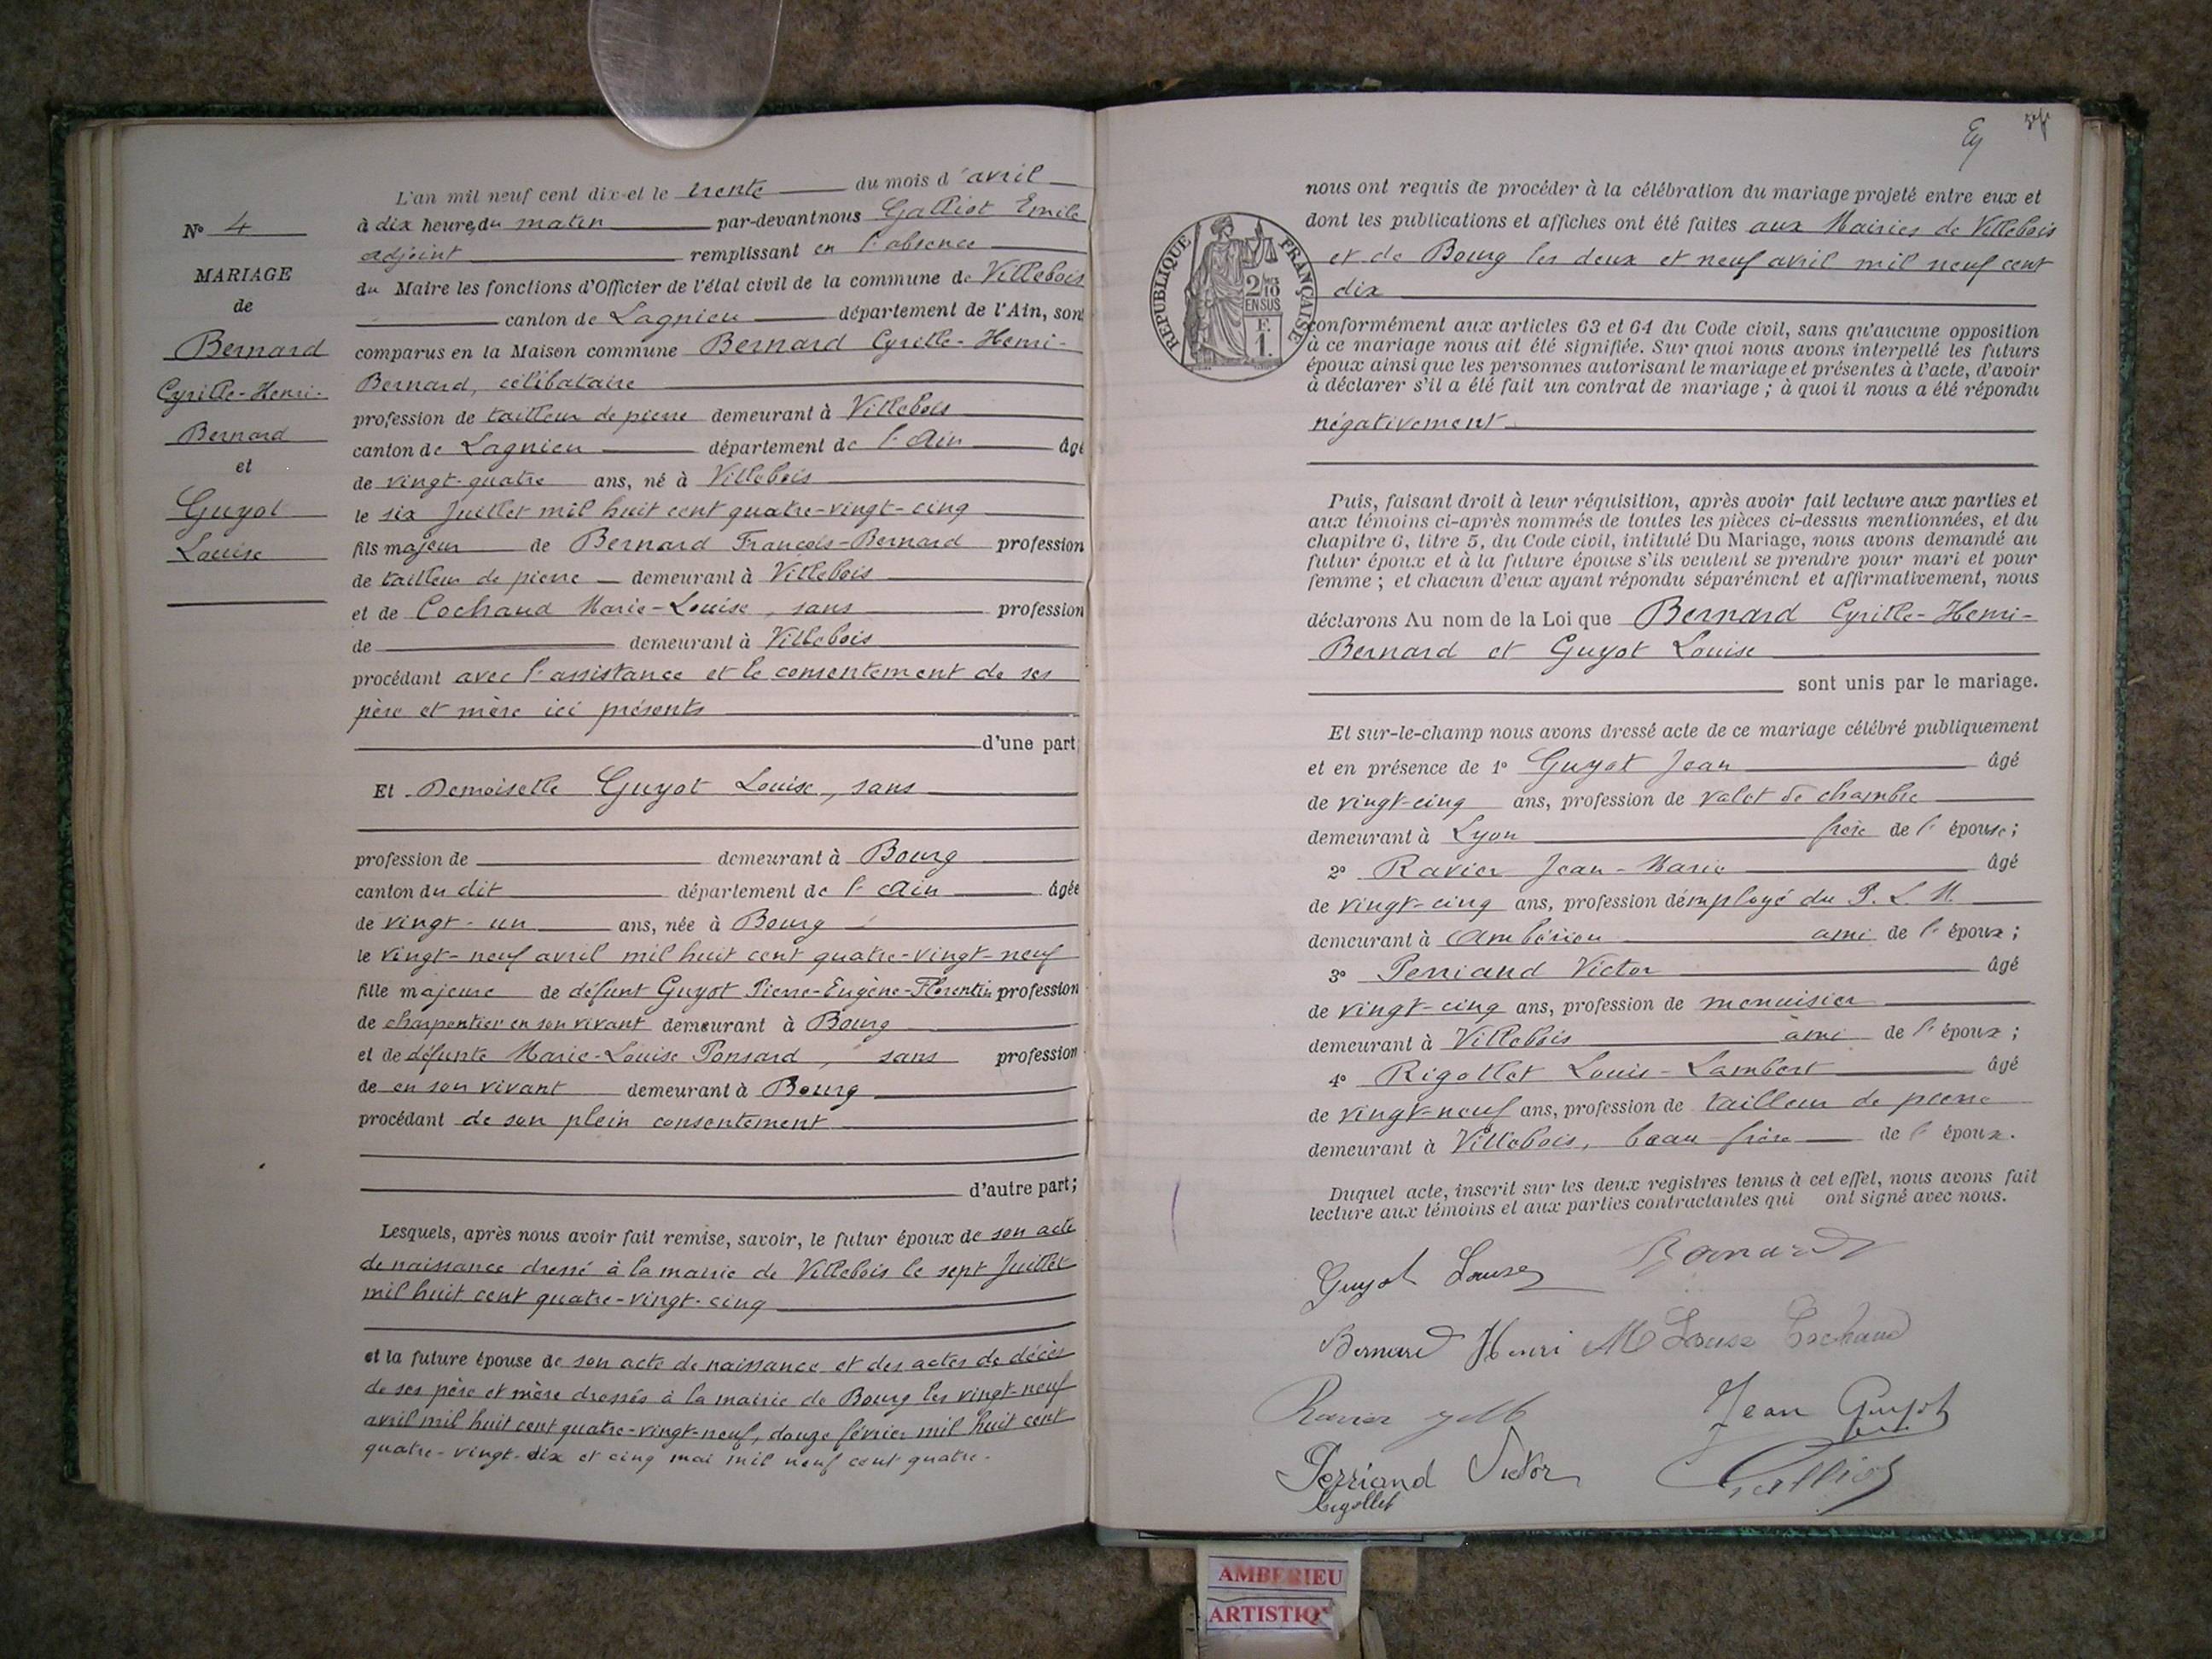 N° 4
MARIAGE
de
Bernard
Cyrille-Henri-
Bernard
et
Guyot
Louise
L'an mil neuf cent dix et le trente du mois d'avril
à dix heures du matin par-devant nous Galliot Emile
adjoint remplissant en l'absence
du Maire les fonctions d'Officier de l'état civil de la commune de Villebois
canton de Lagnieu département de l'Ain, sont
comparus en la Maison commune Bernard Cyrille-Henri-
Bernard, célibataire
profession de tailleur de pierre demeurant à Villebois
canton de Lagnieu département de l'Ain âgé
de vingt-quatre ans, né à Villebois
le six Juillet mil huit cent quatre-vingt-cinq
fils majeur de Bernard François-Bernard profession
de tailleur de pierre demeurant à Villebois
et de Cochaud Marie-Louise, sans profession
de demeurant à Villebois
procédant avec l'assistance et le consentement de ses
père et mère ici présents
d'une part;
Et Demoiselle Guyot Louise, sans
profession de demeurant à Bourg
canton du dit département de l'Ain âgée
de vingt-un ans, née à Bourg
le vingt-neuf avril mil huit cent quatre-vingt-neuf
fille majeure de défunt Guyot Pierre-Eugène-Florentin profession
de charpentier en son vivant demeurant à Bourg
et de défunte Marie-Louise Ponsard, sans profession
de en son vivant demeurant à Bourg
procédant de son plein consentement
d'autre part;
Lesquels, après nous avoir fait remise, savoir, le futur époux de son acte
de naissance dressé à la mairie de Villebois le sept Juillet
mil huit cent quatre-vingt-cinq
et la future épouse de son acte de naissance et des actes de décès
de ses père et mère dressés à la mairie de Bourg les vingt-neuf
avril mil huit cent quatre-vingt-neuf, douze février mil huit cent
quatre-vingt-dix et cinq mai mil neuf cent quatre.
RÉPUBLIQUE FRANÇAISE
2/10
EN SUS
F.
1.
nous ont requis de procéder à la célébration du mariage projeté entre eux et
dont les publications et affiches ont été faites aux Mairies de Villebois
et de Bourg les deux et neuf avril mil neuf cent
dix
conformément aux articles 63 et 64 du Code civil, sans qu'aucune opposition
à ce mariage nous ait été signifiée. Sur quoi nous avons interpellé les futurs
époux ainsi que les personnes autorisant le mariage et présentes à l'acte, d'avoir
à déclarer s'il a été fait un contrat de mariage ; à quoi il nous a été répondu
négativement
Puis, faisant droit à leur réquisition, après avoir fait lecture aux parties et
aux témoins ci-après nommés de toutes les pièces ci-dessus mentionnées, et du
chapitre 6, titre 5, du Code civil, intitulé Du Mariage, nous avons demandé au
futur époux et à la future épouse s'ils veulent se prendre pour mari et pour
femme ; et chacun d'eux ayant répondu séparément et affirmativement, nous
déclarons Au nom de la Loi que Bernard Cyrille-Henri-
Bernard et Guyot Louise
sont unis par le mariage.
Et sur-le-champ nous avons dressé acte de ce mariage célébré publiquement
et en présence de 1° Guyot Jean âgé
de vingt-cinq ans, profession de valet de chambre
demeurant à Lyon frère de l'épouse;
2° Ravier Jean-Marie âgé
de vingt-cinq ans, profession d'employé du P. L. M.
demeurant à Ambérieu ami de l'époux;
3° Perriand Victor âgé
de vingt-cinq ans, profession de menuisier
demeurant à Villebois ami de l'époux;
4° Rigollet Louis-Lambert âgé
de vingt-neuf ans, profession de tailleur de pierre
demeurant à Villebois, beau-frère de l'époux.
Duquel acte, inscrit sur les deux registres tenus à cet effet, nous avons fait
lecture aux témoins et aux parties contractantes qui ont signé avec nous.
Guyot Louise Bernard
Bernard Henri M Louise Cochaud
Ravier Jean Guyot
Perriand Victor Galliot
Rigollet
AMBERIEU
ARTISTIQ